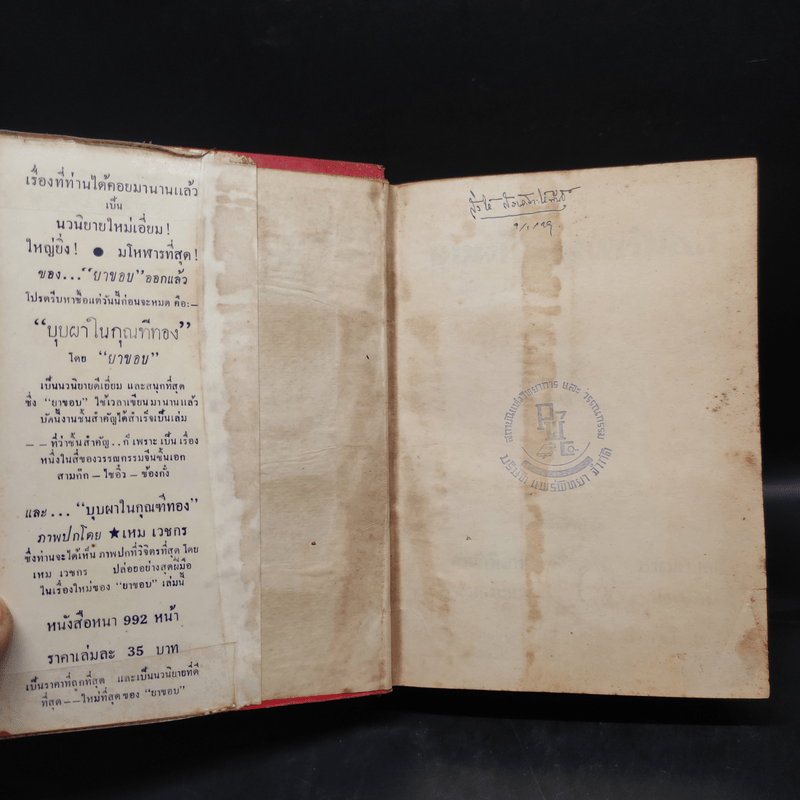 เรื่องที่ท่านได้คอยมานานแล้ว
เป็น
นวนิยายใหม่เอี่ยม!
ใหญ่ยิ่ง! ● มโหฬารที่สุด!
ของ..."ยาขอบ" ออกแล้ว
โปรดรีบหาซื้อแต่วันนี้ก่อนจะหมด คือ:–
"บุบผาในกุณฑีทอง"
โดย "ยาขอบ"
เป็นนวนิยายดีเยี่ยม และสนุกที่สุด
ซึ่ง "ยาขอบ" ใช้เวลาเขียนมานานแล้ว
บัดนี้งานชั้นสำคัญได้สำเร็จเป็นเล่ม
–– ที่ว่าชั้นสำคัญ..ก็ เพราะ เป็น เรื่อง
หนึ่งในสี่ของวรรณกรรมจีนชั้นเอก
สามก๊ก – ไซอิ๋ว – ซ้องกั๋ง
และ... "บุบผาในกุณฑีทอง"
ภาพปกโดย ★ เหม เวชกร
ซึ่งท่านจะได้เห็น ภาพปกที่วิจิตรที่สุด โดย
เหม เวชกร ปล่อยอย่างสุดฝีมือ
ในเรื่องใหม่ของ "ยาขอบ" เล่มนี้
หนังสือหนา 992 หน้า
ราคาเล่มละ 35 บาท
เป็นราคาที่ถูกที่สุด และเป็นนวนิยายที่ดี
ที่สุด––ใหม่ที่สุด ของ "ยาขอบ"
สถาบันแห่งวิทยาการ และ วรรณกรรม
บริษัท แพร่พิทยา จำกัด